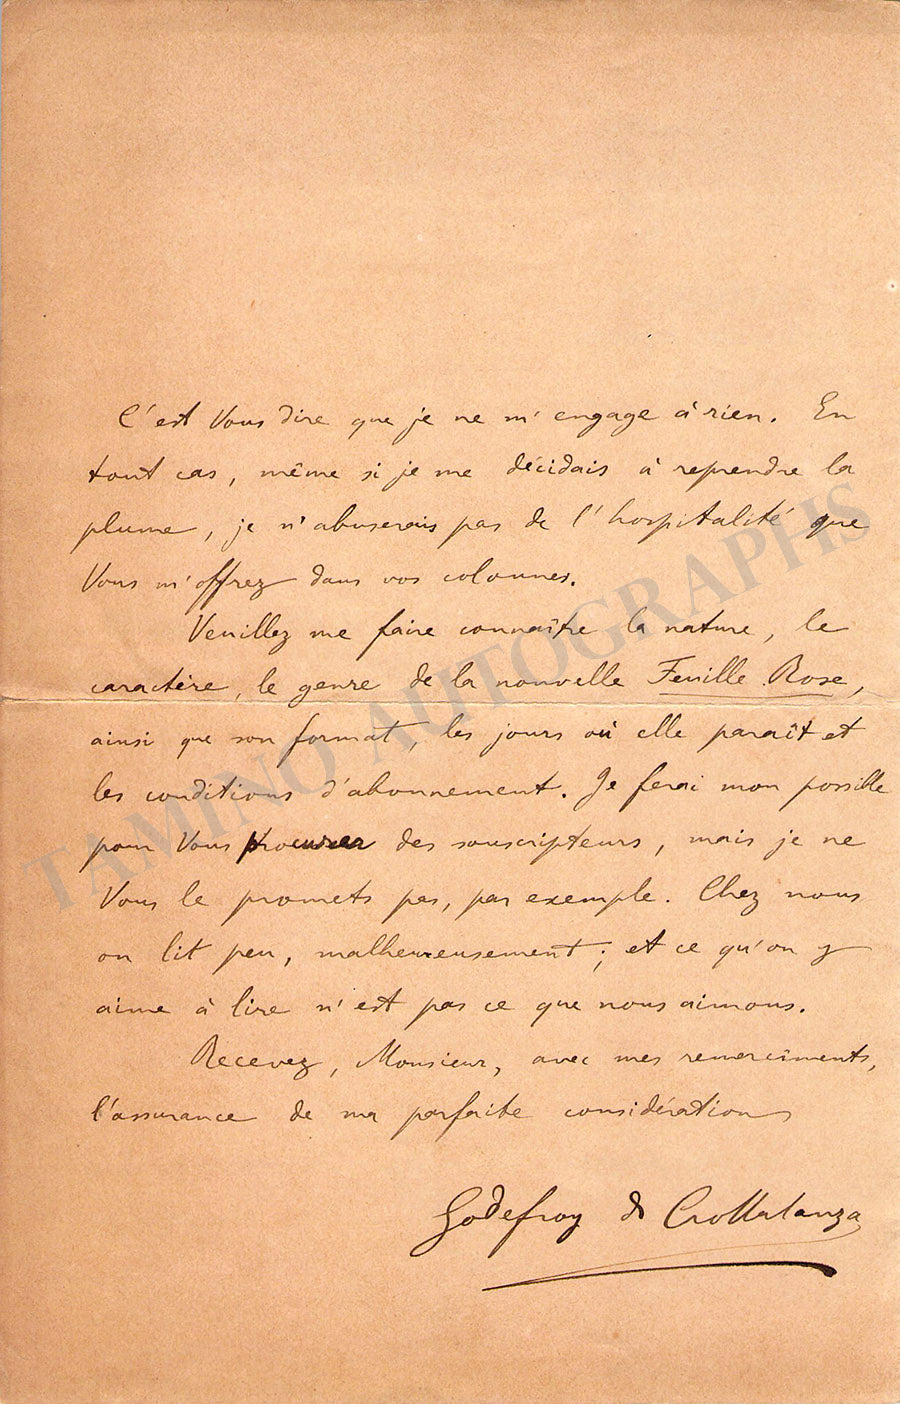 C'est Vous dire que je ne m'engage à rien. En
tout cas, même si je me décidais à reprendre la
plume, je n'abuserais pas de l'hospitalité que
Vous m'offrez dans vos colonnes.
Veuillez me faire connaître la nature, le
caractère, le genre de la nouvelle Feuille Rose,
ainsi que son format, les jours où elle paraît et
les conditions d'abonnement. Je ferai mon possible
pour Vous procurer des souscripteurs, mais je ne
Vous le promets pas, par exemple. Chez nous
on lit peu, malheureusement; et ce qu'on y
aime à lire n'est pas ce que nous aimons.
Recevez, Monsieur, avec mes remercîments,
l'assurance de ma parfaite considération
Godefroy de Crollalanza
TAMINO AUTOGRAPHS